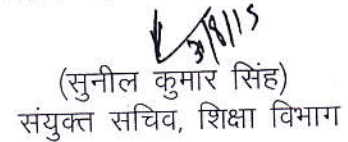 3/8/15
(सुनील कुमार सिंह)
संयुक्त सचिव, शिक्षा विभाग